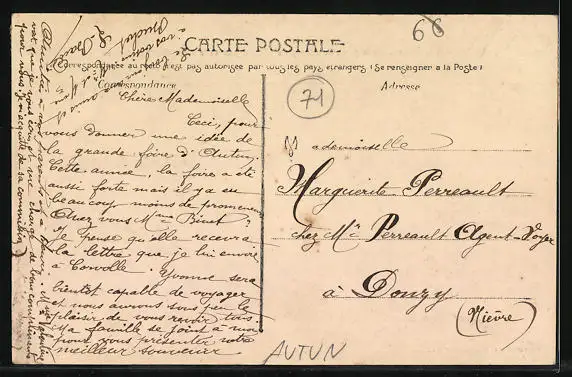 66
CARTE POSTALE
(Correspondance au recto n'est pas autorisée par tous les pays étrangers (Se renseigner à la Poste)
Correspondance
Adresse
71
Chère Mademoiselle
Ceci, pour
vous donner une idée de
la grande foire d'Autun.
Cette année, la foire a été
aussi forte mais il y a eu
beaucoup moins de promeneurs
Chez vous Mme Binet ?
Je pense qu'elle recevra
la lettre que je lui envoie
à Corvolle. Yvonne sera
bientôt capable de voyager
et nous aurons sous peu le
plaisir de vous revoir tous.
Ma famille se joint à moi
pour vous présenter notre
meilleur souvenir
Mademoiselle
Marguerite Perreault
chez Mr Perreault Agent-Voyer
à Donzy
(Nièvre)
AUTUN
pour nous. Je m'acquitte de sa commission)